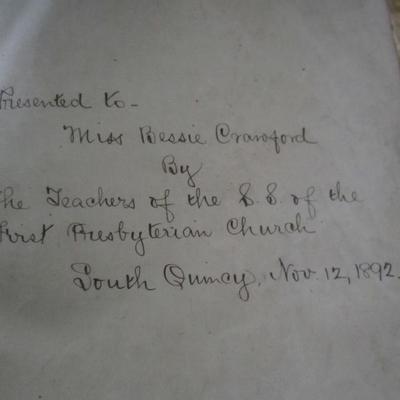 Presented to-
Miss Bessie Crawford
By
The Teachers of the S.S. of the
First Presbyterian Church
South Quincy, Nov. 12, 1892.